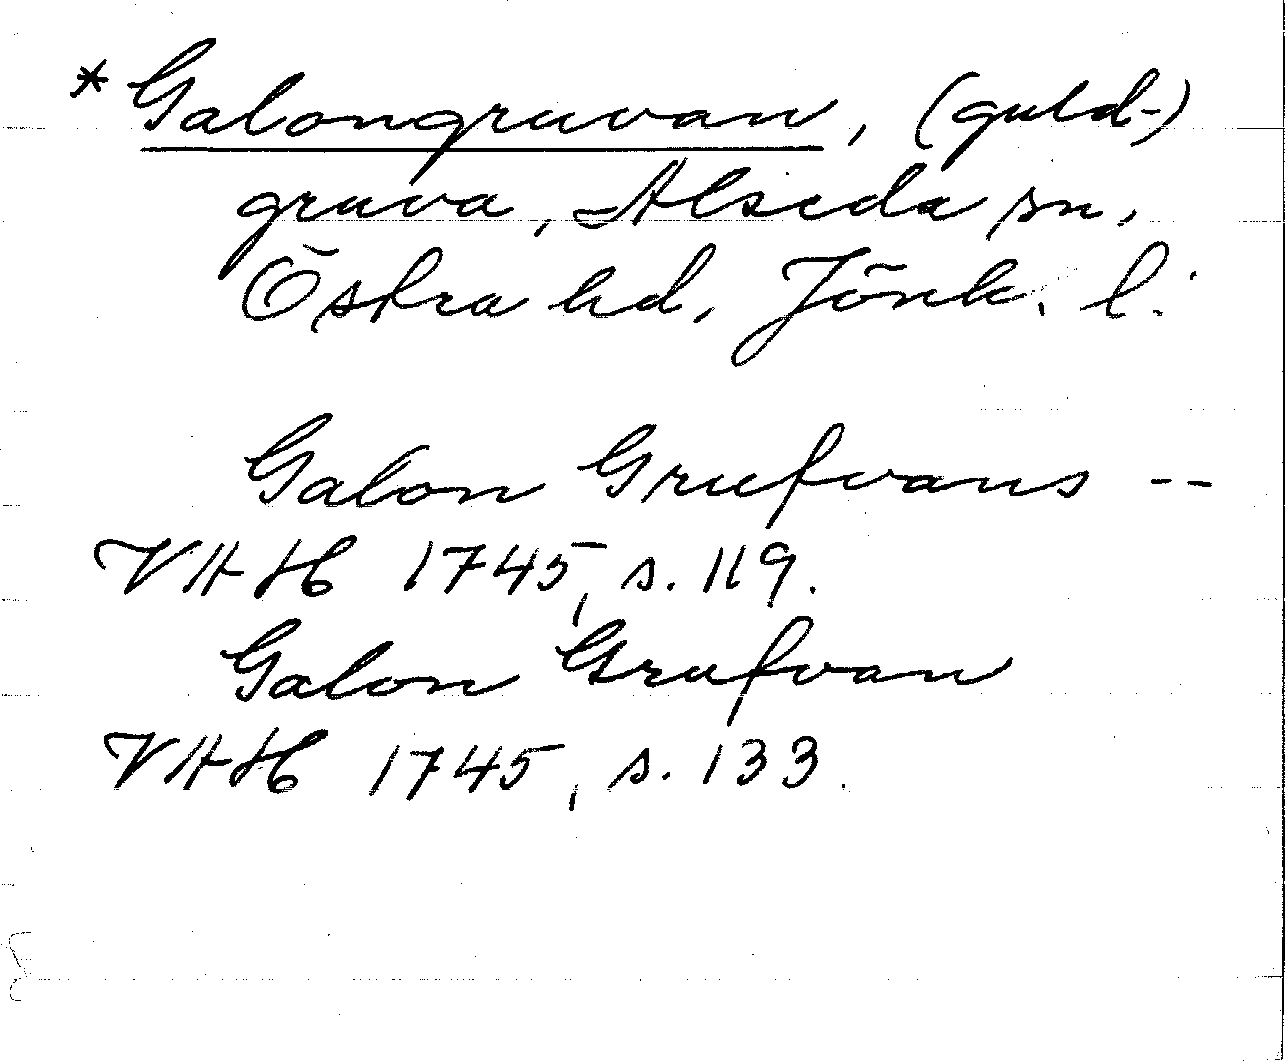 * Galongruvan, (guld-)
gruva, Alseda sn.
Östra hd, Jönk. l.
Galon Grufvans --
VHH 1745, s. 119.
Galon Grufvan
VHH 1745, s. 133.